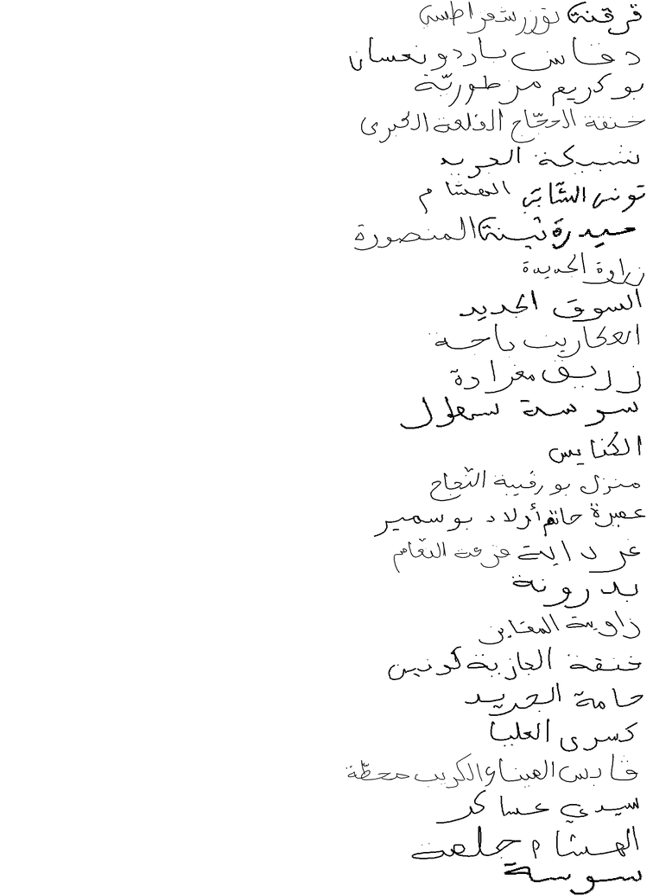 قرقنة توزر شعراطسي
دخاش باردو نعسان
بو كريم مرطوريّة
خنقة الحجّاج القلعة الكبرى
شبيكة الجريد
تونس الشّابّي الهشام
حيدرة تبينة المنصورة
زراوة الجديدة
السوق الجديد
العكاريت باجة
زريق مغرادة
سوسة سهلول
الكنايس
منزل بورقيبة النّجاح
عميرة حاتم أولاد بوسمير
غرداية قرعة النعام
بدرونة
زاوية المقايز
خنقة الجازية كونين
حامة الجريد
كسرى العليا
قابس الميناء الكريب محطّة
سيدي عساكر
الهشام جلمة
سوسة